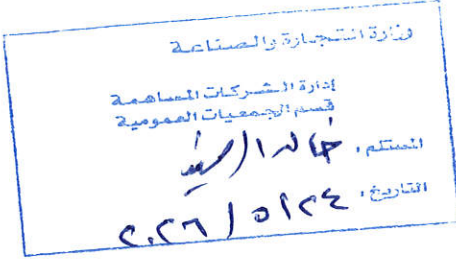 وزارة التجارة والصناعة
إدارة الشركات المساهمة
قسم الجمعيات العمومية
المستلم، خالد
التاريخ، ٢٠٢٦ / ٥ / ٢٤